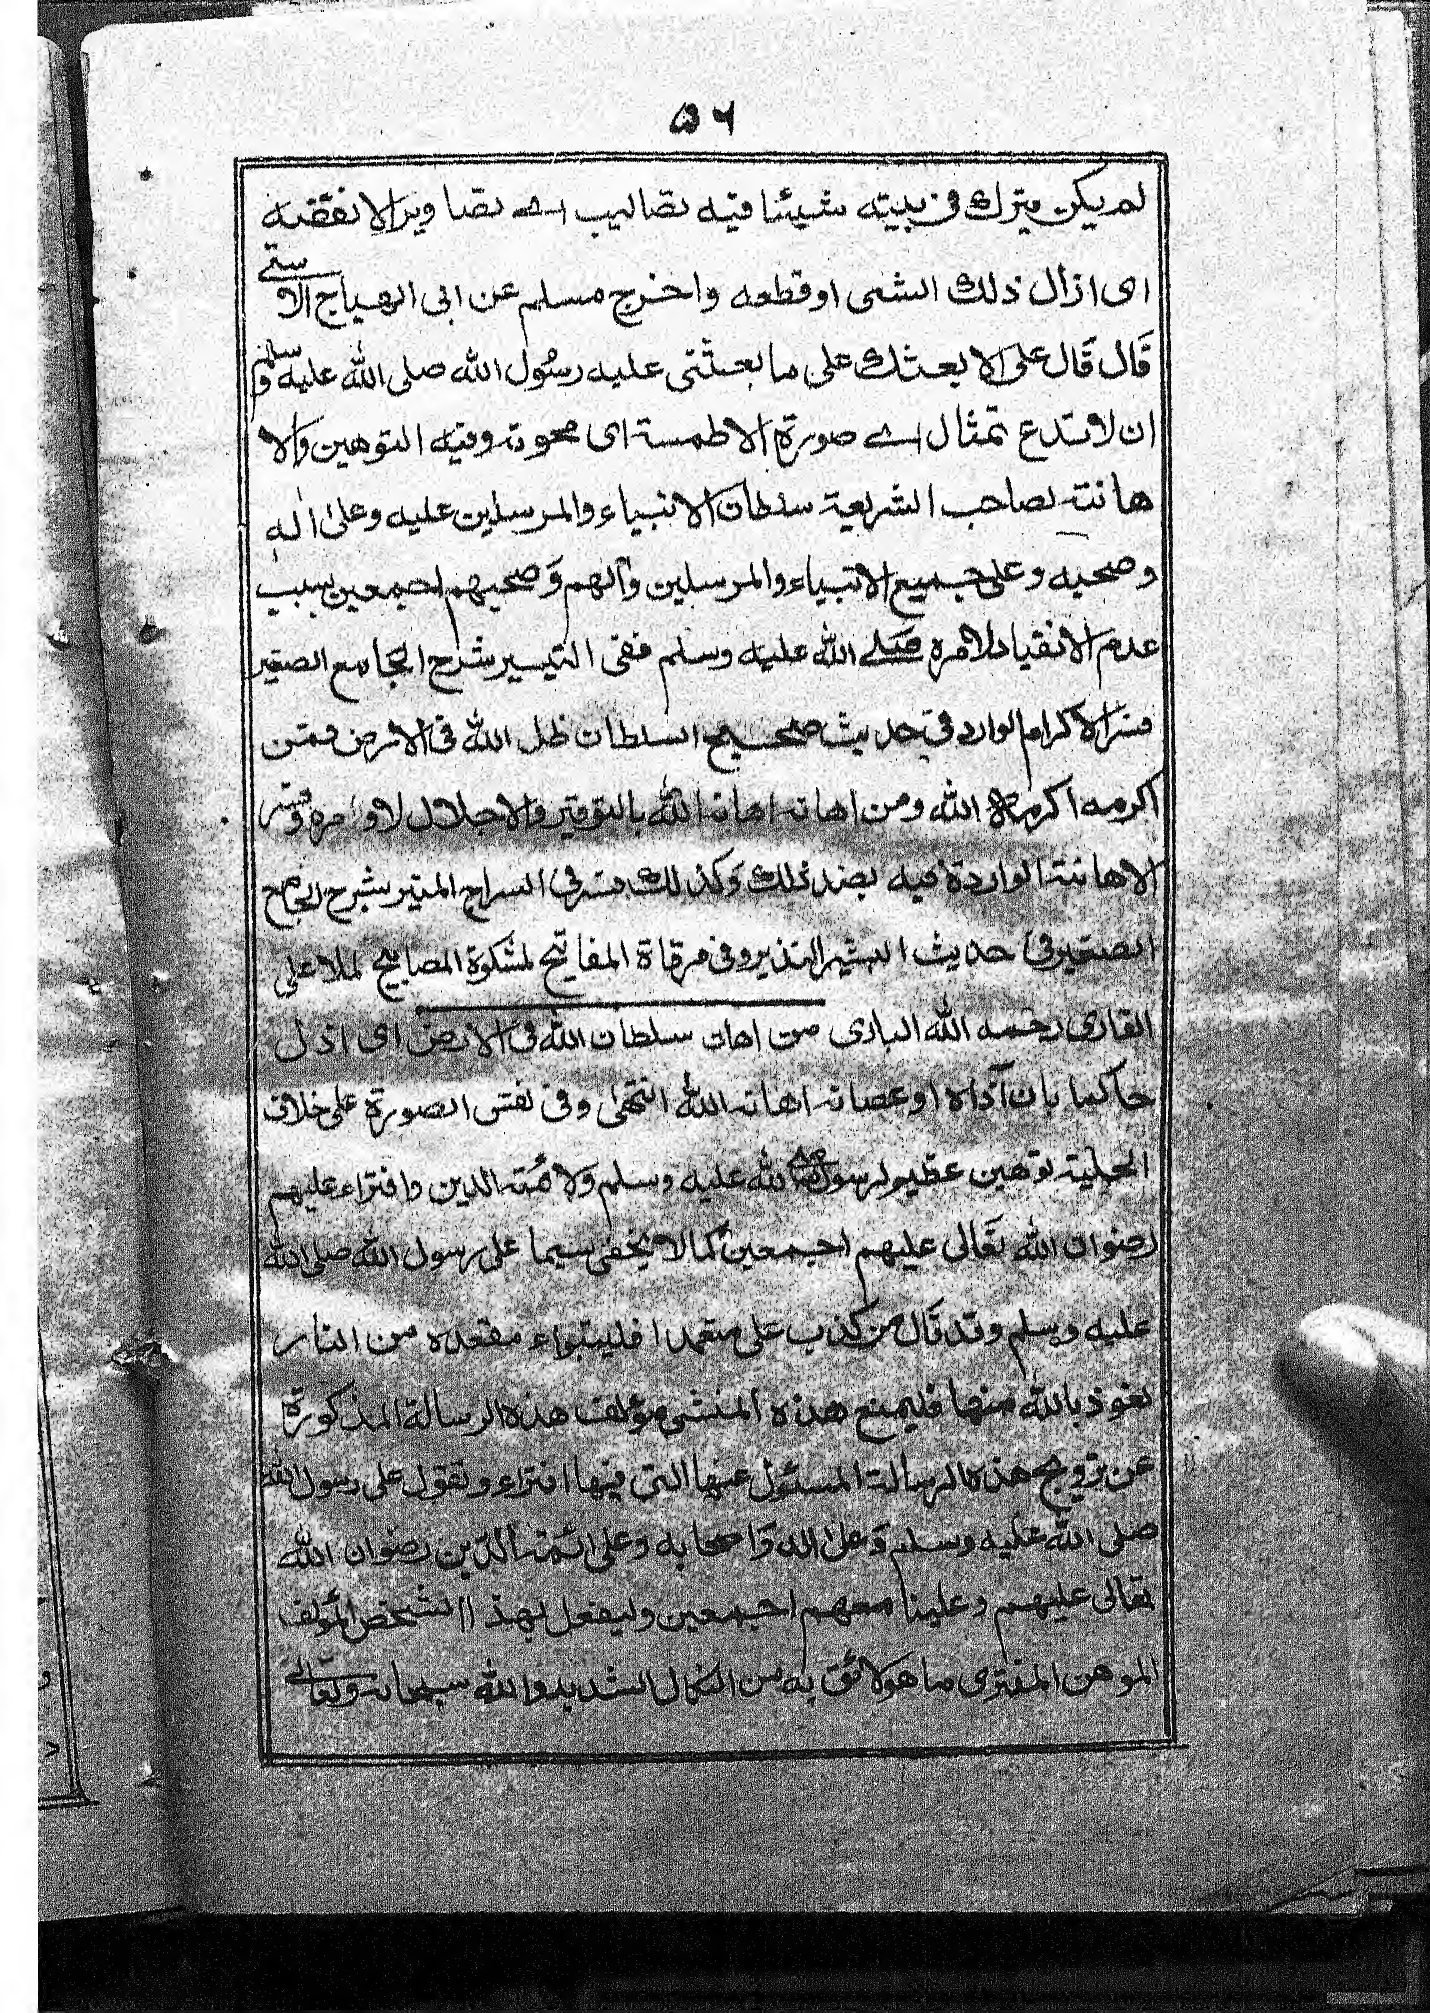 ۵۶
لم يكن يترك فى بيته شيئا فيه تصاليب اے تصاوير الا نقضه
اى ازال ذلك الشى او قطعه واخرج مسلم عن ابى الهياج الاستے
قَال قَال على الا بعثك على ما بعثنى عليه رسُول الله صلى الله عليه وسلم
ان لا تدع تمثال اے صورة الا طمسة اى محوته وفيه التوهين والا
هانته لصاحب الشريعة سلطان الانبياء والمرسلين عليه وعلىٰ اٰلهٖ
وصحبه وعلى جميع الانبياء والمرسلين وآلهم وَصحبهم اجمعين بسبب
عدم الانقياد لامره صَلے الله عليه وسلم ففى التيسير شرح الجامع الصغير
فسر الاكرام الوارد فى حديث صحيح السلطان ظل الله فى الارض فمن
اكرمه اكرمه الله ومن اهانه اهانه الله بالتوقير والاجلال لاوامره وفسر
الاهانته الواردة فيه بضد ذلك وَكذلك فسر فى السراج المنير بشرح الجامع
الصغير فى حديث البشير النذير وفى مرقاة المفاتيح لمشكوة المصابيح لملا على
القارى رحمه الله البارى من اهان سلطان الله فى الارض اى اذل
حاكما بان آذاه او عصانه اهانه الله انتهىٰ وفى نفس الصورة على خلاف
الحلية توهين عظيم لرسول صلے الله عليه وسلم وَلائمته الدين وافتراء عليهم
رضوان الله تعَالى عليهم اجمعين كما لا يخفى سيما على رسول الله صلى الله
عليه وسلم وقد قَال من كذب على متعمدا فليتبواء مقعده من النار
نعوذ بالله منها فليمنع هذه المنشى مؤلف هذه الرسالة المذكورة
عن ترويج هذه الرسالة المسئول عنها التى فيها افتراء وتقول على رسول الله
صلى الله عليه وسلم وَعلى اله وَاصحابه وعلى ائمته الدّين رضوان الله
تعالى عليهم وعلينا معهم اجمعين وليفعل بهذ االشخص المؤلف
الموهن المفترى ما هو لائق به من النكال الشديد والله سبحانه وتعالےٰ